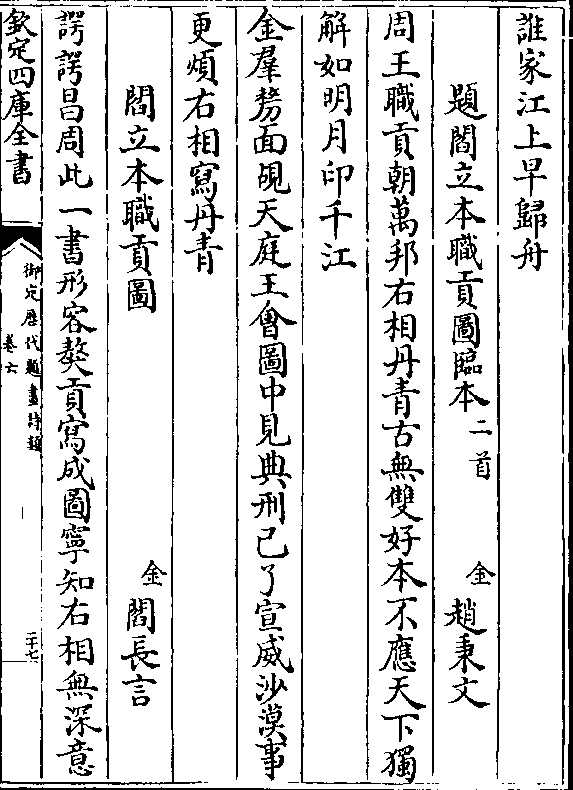 誰家江上早歸舟
題閻立本職貢圖臨本二首 金 趙秉文
周王職貢朝萬邦右相丹青古無雙好本不應天下獨
解如明月印千江
金羣剺面覘天庭王會圖中見典刑已了宣威沙漠事
更煩右相寫丹青
閻立本職貢圖 金 閻長言
諤諤昌周此一書形容獒貢寫成圖寧知右相無深意
欽定四庫全書
御定歷代題畫詩類
卷六
二十七